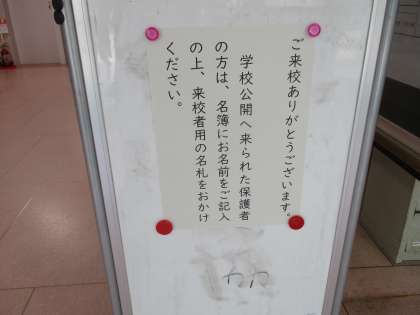 ご来校ありがとうございます。
学校公開へ来られた保護者
の方は、名簿にお名前をご記入
の上、来校者用の名札をおかけ
ください。